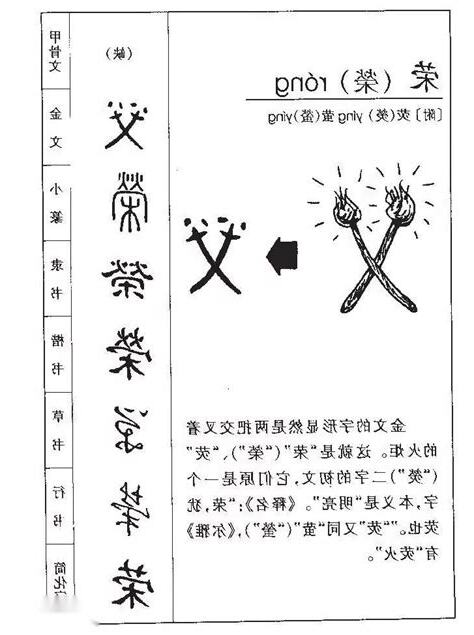 荣（榮）róng
〔附〕荧(熒) yíng 萤(螢)yíng
金文的字形显然是两把交叉着
的火炬。这就是“荣”（“榮”）、“荧”
（“熒”）二字的初文，它们原是一个
字，本义是“明亮”。《释名》：“荣，犹
荧也。”“荧”又同“萤”（“螢”），《尔雅》
有“荧火”。
甲骨文
（缺）
金文
小篆
榮
隶书
榮
楷书
榮
草书
行书
简化
荣